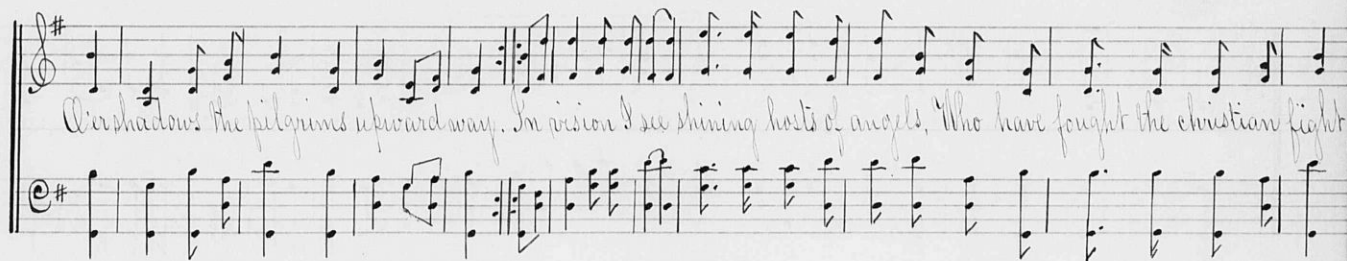 O'ershadows the pilgrims upward way. In vision I see shining hosts of angels, Who have fought the christian fight